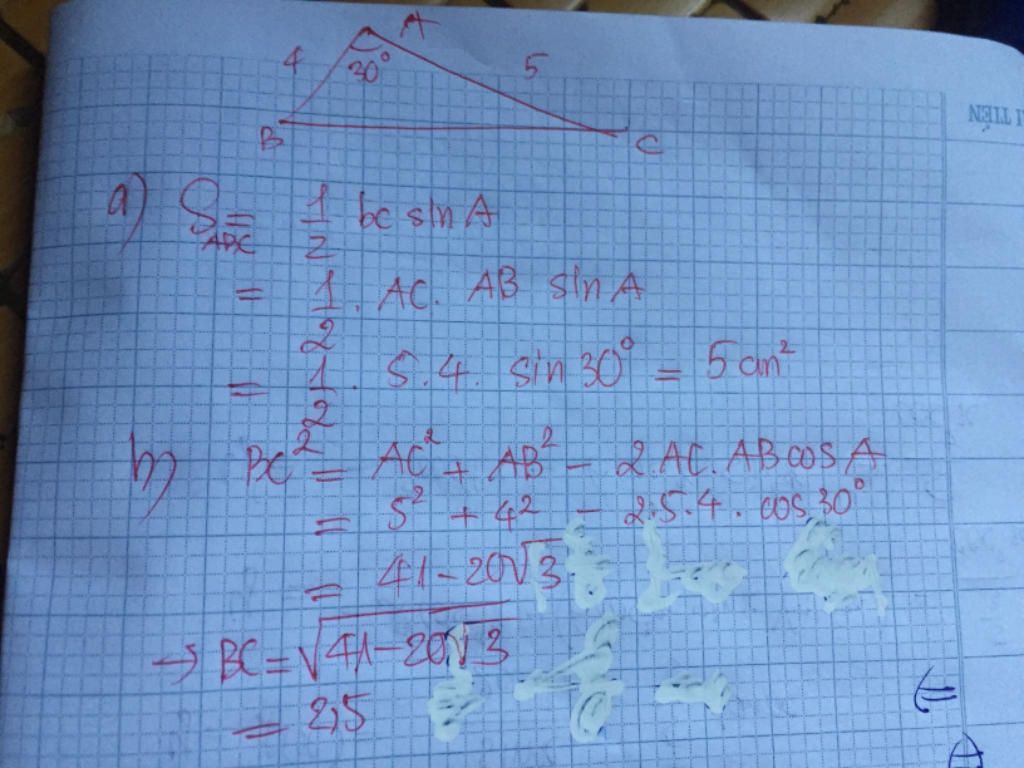 A
4 30° 5
B C
a) S ABC = 1/2 bc sin A
= 1/2 . AC. AB sin A
= 1/2 . 5.4. sin 30° = 5 cm²
b) BC² = AC² + AB² - 2.AC.AB cos A
= 5² + 4² - 2.5.4. cos 30°
= 41 - 20√3
→ BC = √(41-20√3)
= 2,5
TIẾN